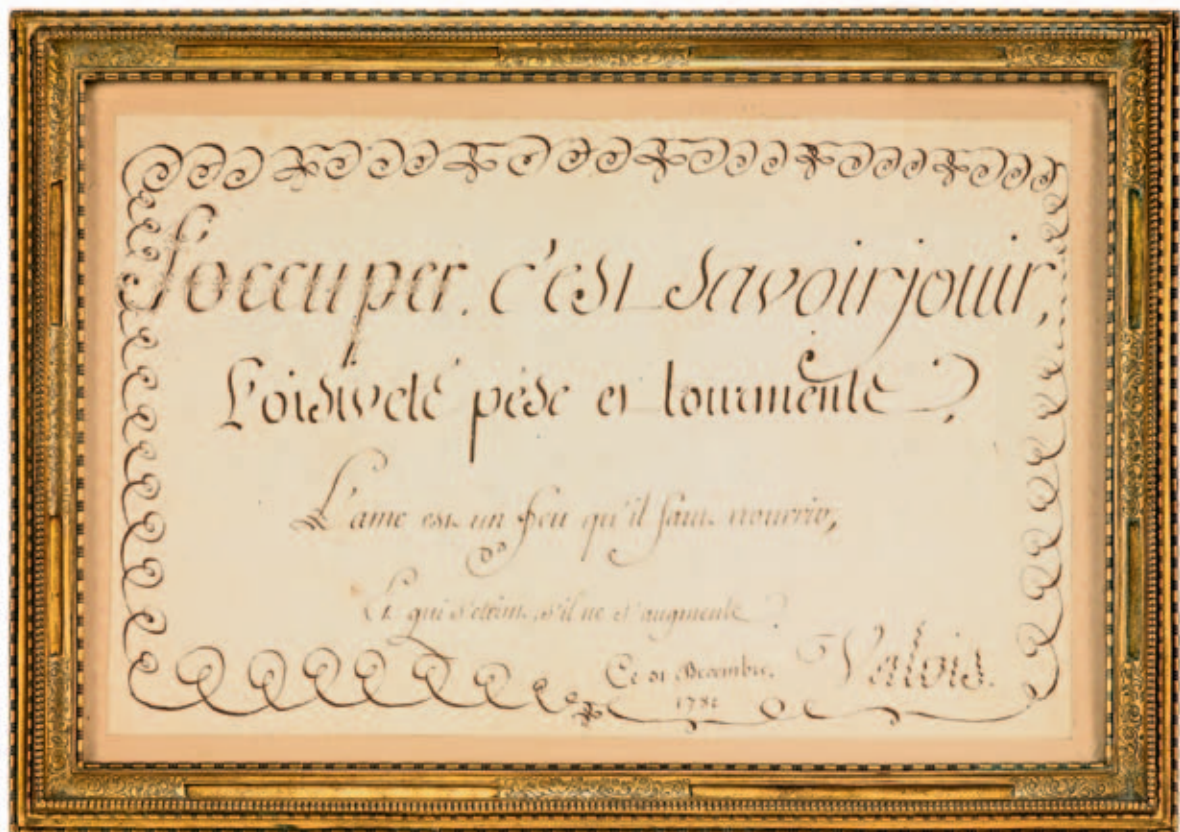 S'occuper, c'est savoir jouir,
L'oisiveté pèse et tourmente.
L'ame est un feu qu'il faut nourrir,
Et qui s'eteint s'il ne s'augmente.
Ce 31 Decembre. Valois.
1781